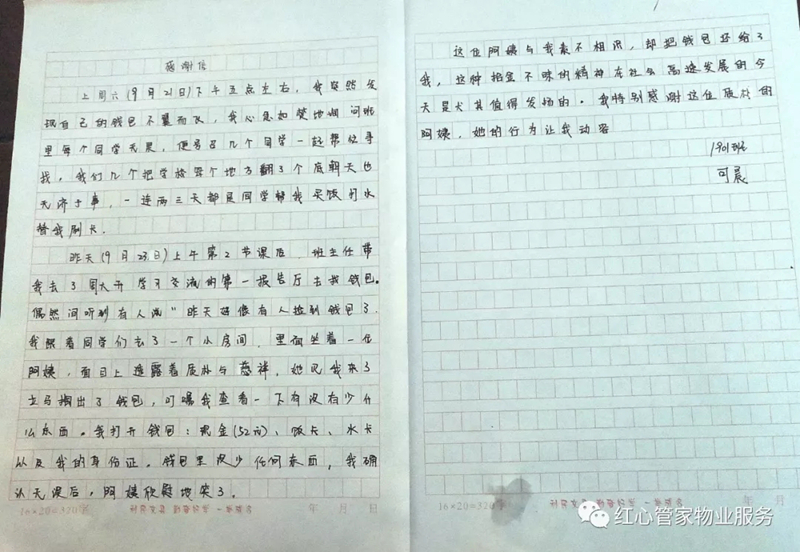 感谢信
上周六(9月21日)下午五点左右,我突然发
现自己的钱包不翼而飞,我心急如焚地询问班
里每个同学无果,便号召几个同学一起帮忙寻
找,我们几个把学校每个地方翻了个底朝天也
无济于事,一连两三天都是同学帮我买饭打水
替我刷卡。
昨天(9月23日)上午第2节课后,班主任带
我去了周大开学习交流的第一报告厅去找钱包。
偶然间听到有人说"昨天好像有人捡到钱包了,
我跟着同学们去了一个小房间,里面坐着一位
阿姨,面目上透露着质朴与慈祥,她见我来了
立马掏出了钱包,叮嘱我查看一下有没有少什
么东西。我打开钱包:现金(52元)、饭卡、水卡
以及我的身份证。钱包里没少任何东西,我确
认无误后,阿姨欣慰地笑了。
16×20=320字
年 月 日
这位阿姨与我素不相识,却把钱包还给了
我,这种拾金不昧的精神在社会高速发展的今
天是尤其值得发扬的。我特别感谢这位质朴的
阿姨,她的行为让我动容
1901班
可晨
16×20=320字
年 月 日
红心管家物业服务